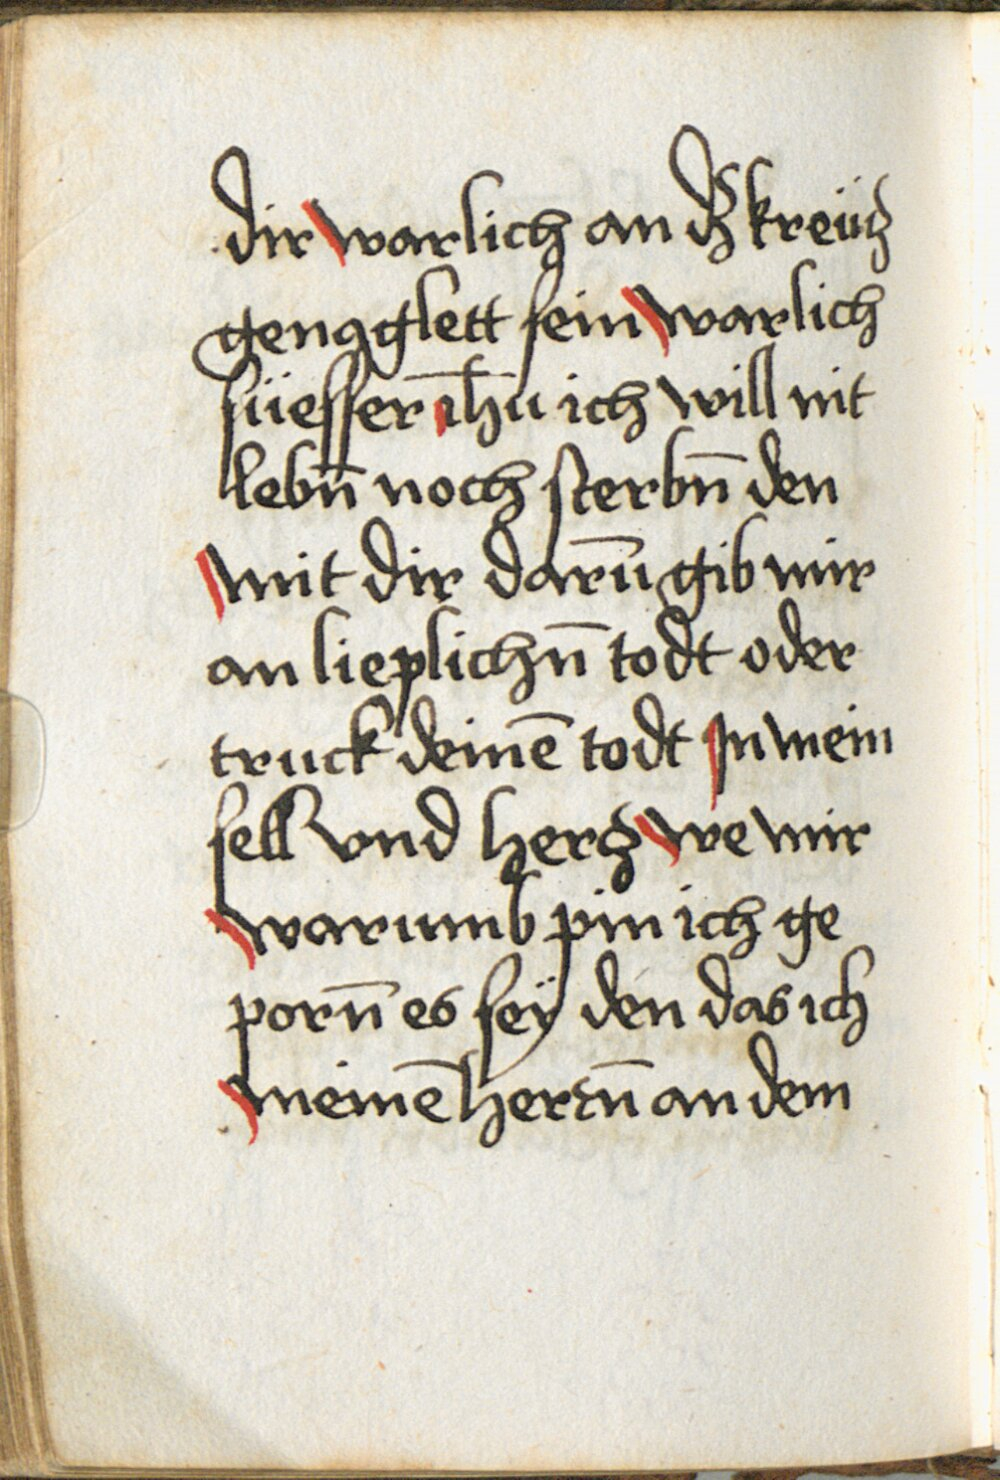 dir warlich an dz kreütz
genagglett sein warlich
süesser ihū ich will nit
lebn̄ noch sterbn̄ den
mit dir darū gib mir
an lieplichn̄ todt oder
truck deinē todt Jn mein
sell vnd hertz we mir
warumb pin ich ge
porn̄ es seÿ den das ich
meinē herrn̄ an dem